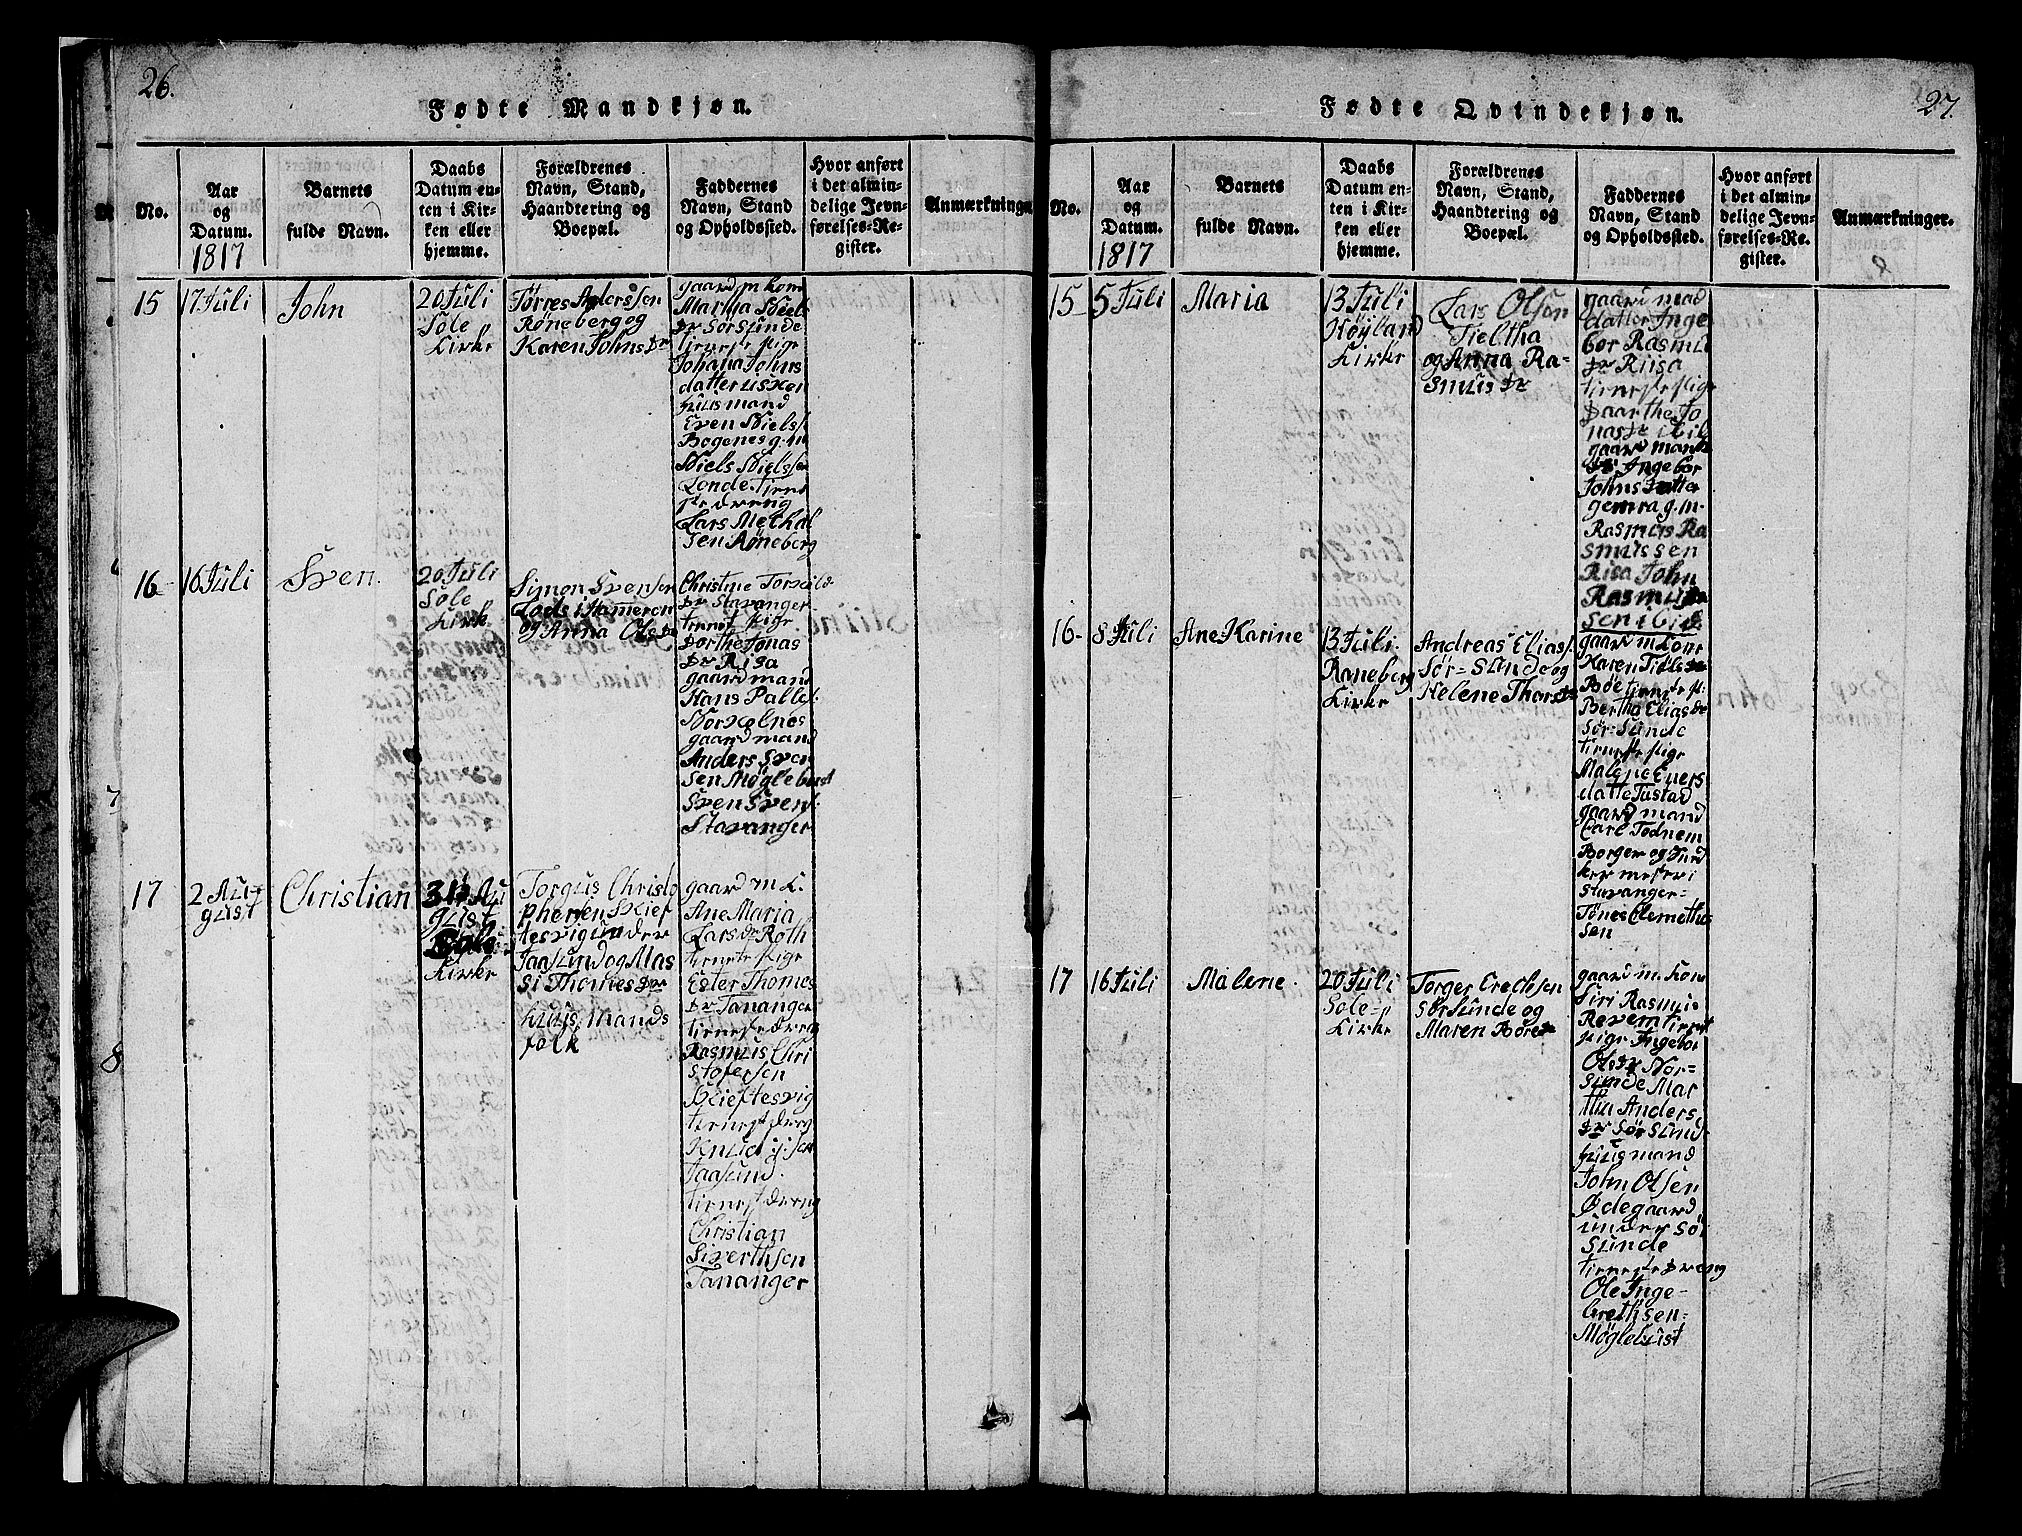 26.
Fødte Mandkjøn.
No.
Aar
og
Datum.
1817
Barnets
fulde Navn.
Daabs
Datum en-
ten i Kir-
ken eller
hjemme.
Forældrenes
Navn, Stand,
Haandtering og
Boepæl.
Faddernes
Navn, Stand
og Opholdssted.
Hvor anført
i det almin-
delige Jevn-
førelses-Re-
gister.
Anmærkninger
15
17 Juli
John
20 Juli
Sole
Kirke
Tørres Anderssen
Røneberg og
Karen Johns dr
gaard m kone
Martha Niels
dr Sør Sunde
tieneste pige
Johana Johns
datter
huusmand
Even Niels s
Bogenes g. m
Niels Nielssen
tiene
ste dreng
Lars
sen Røneberg
16
16 Juli
Sven
20 Juli
Sole
Kirke
Simon Svensen
og Anna Ols dr
Christine Torkild
dr Stavanger
tienest pige
Dorthe Jonas
dr Risa
gaardmand
Hans Palles
gaard mand
Anders Sven
sen Møglebust
Sven Svens
Stavanger
17
2 Au
gust
Christian
3 Au
gust
Sole
Kirke
Torgus Christo
phersen Skief
tesvig under
Jaasund og Mas
si Thomes dr
huus mands
folk
gaard m k.
Ane Maria
Lars dr Roth
tieneste pige
Ester Thomes
dr Tananger
tieneste dreng
Rasmus Chri
stofersen
Skieftesvig
tienest dreng
Knud
Jaasund.
tienest dreng
Christian
Siverthsen
Tananger
27.
Fødte Qvindekjøn.
No.
Aar
og
Datum.
1817
Barnets
fulde Navn.
Daabs
Datum en-
ten i Kir-
ken eller
hjemme.
Forældrenes
Navn, Stand,
Haandtering og
Boepæl.
Faddernes
Navn, Stand
og Opholdssted.
Hvor anført
i det almin-
delige Jevn-
førelses-Re-
gister.
Anmærkninger.
15
5 Juli
Maria
13 Juli
Høyland
Kirke
Lars Olsen
Tieltha
og Anna Ra-
smus dr
gaard mad
datter Inge
bor Rasmu
dr Riisa
tieneste pige
Daarthe Jo
nas dr ibid
gaard mand
dr Ingebor
Johns datter
gemra g. m.
Rasmus Ra
smussen
Risa John
Rasmus
sen ibid
16
8 Juli
Ane Karine
13 Juli
Raneberg
Kirke
Andreas Elias s
Sør-Sunde og
Helene Thors dr
gaard m kone
Karen
Bøe tieneste pi
Bertha Elias dr
Sør Sunde
tieneste pige
Malene Evers
datte Tustad
gaard mand
Carl Todnem
Borger og Sned
ker mester i
Stavanger-
Tønes Clemeths
sen
17
16 Juli
Malene.
20 Juli
Sole-
Kirke
Torger Erechsen
Sør Sunde og
Maren
gaard m. kone
Siri Rasmus
Revem tienest
pige Ingebor
Ols dr Nor-
sunde Mar
tha Anders
dr Sør Sund
huusmand
John Olsen
Ødegaard
under Sør
Sunde
tieneste dreng
Ole Inge-
brethsen-
Møglebust